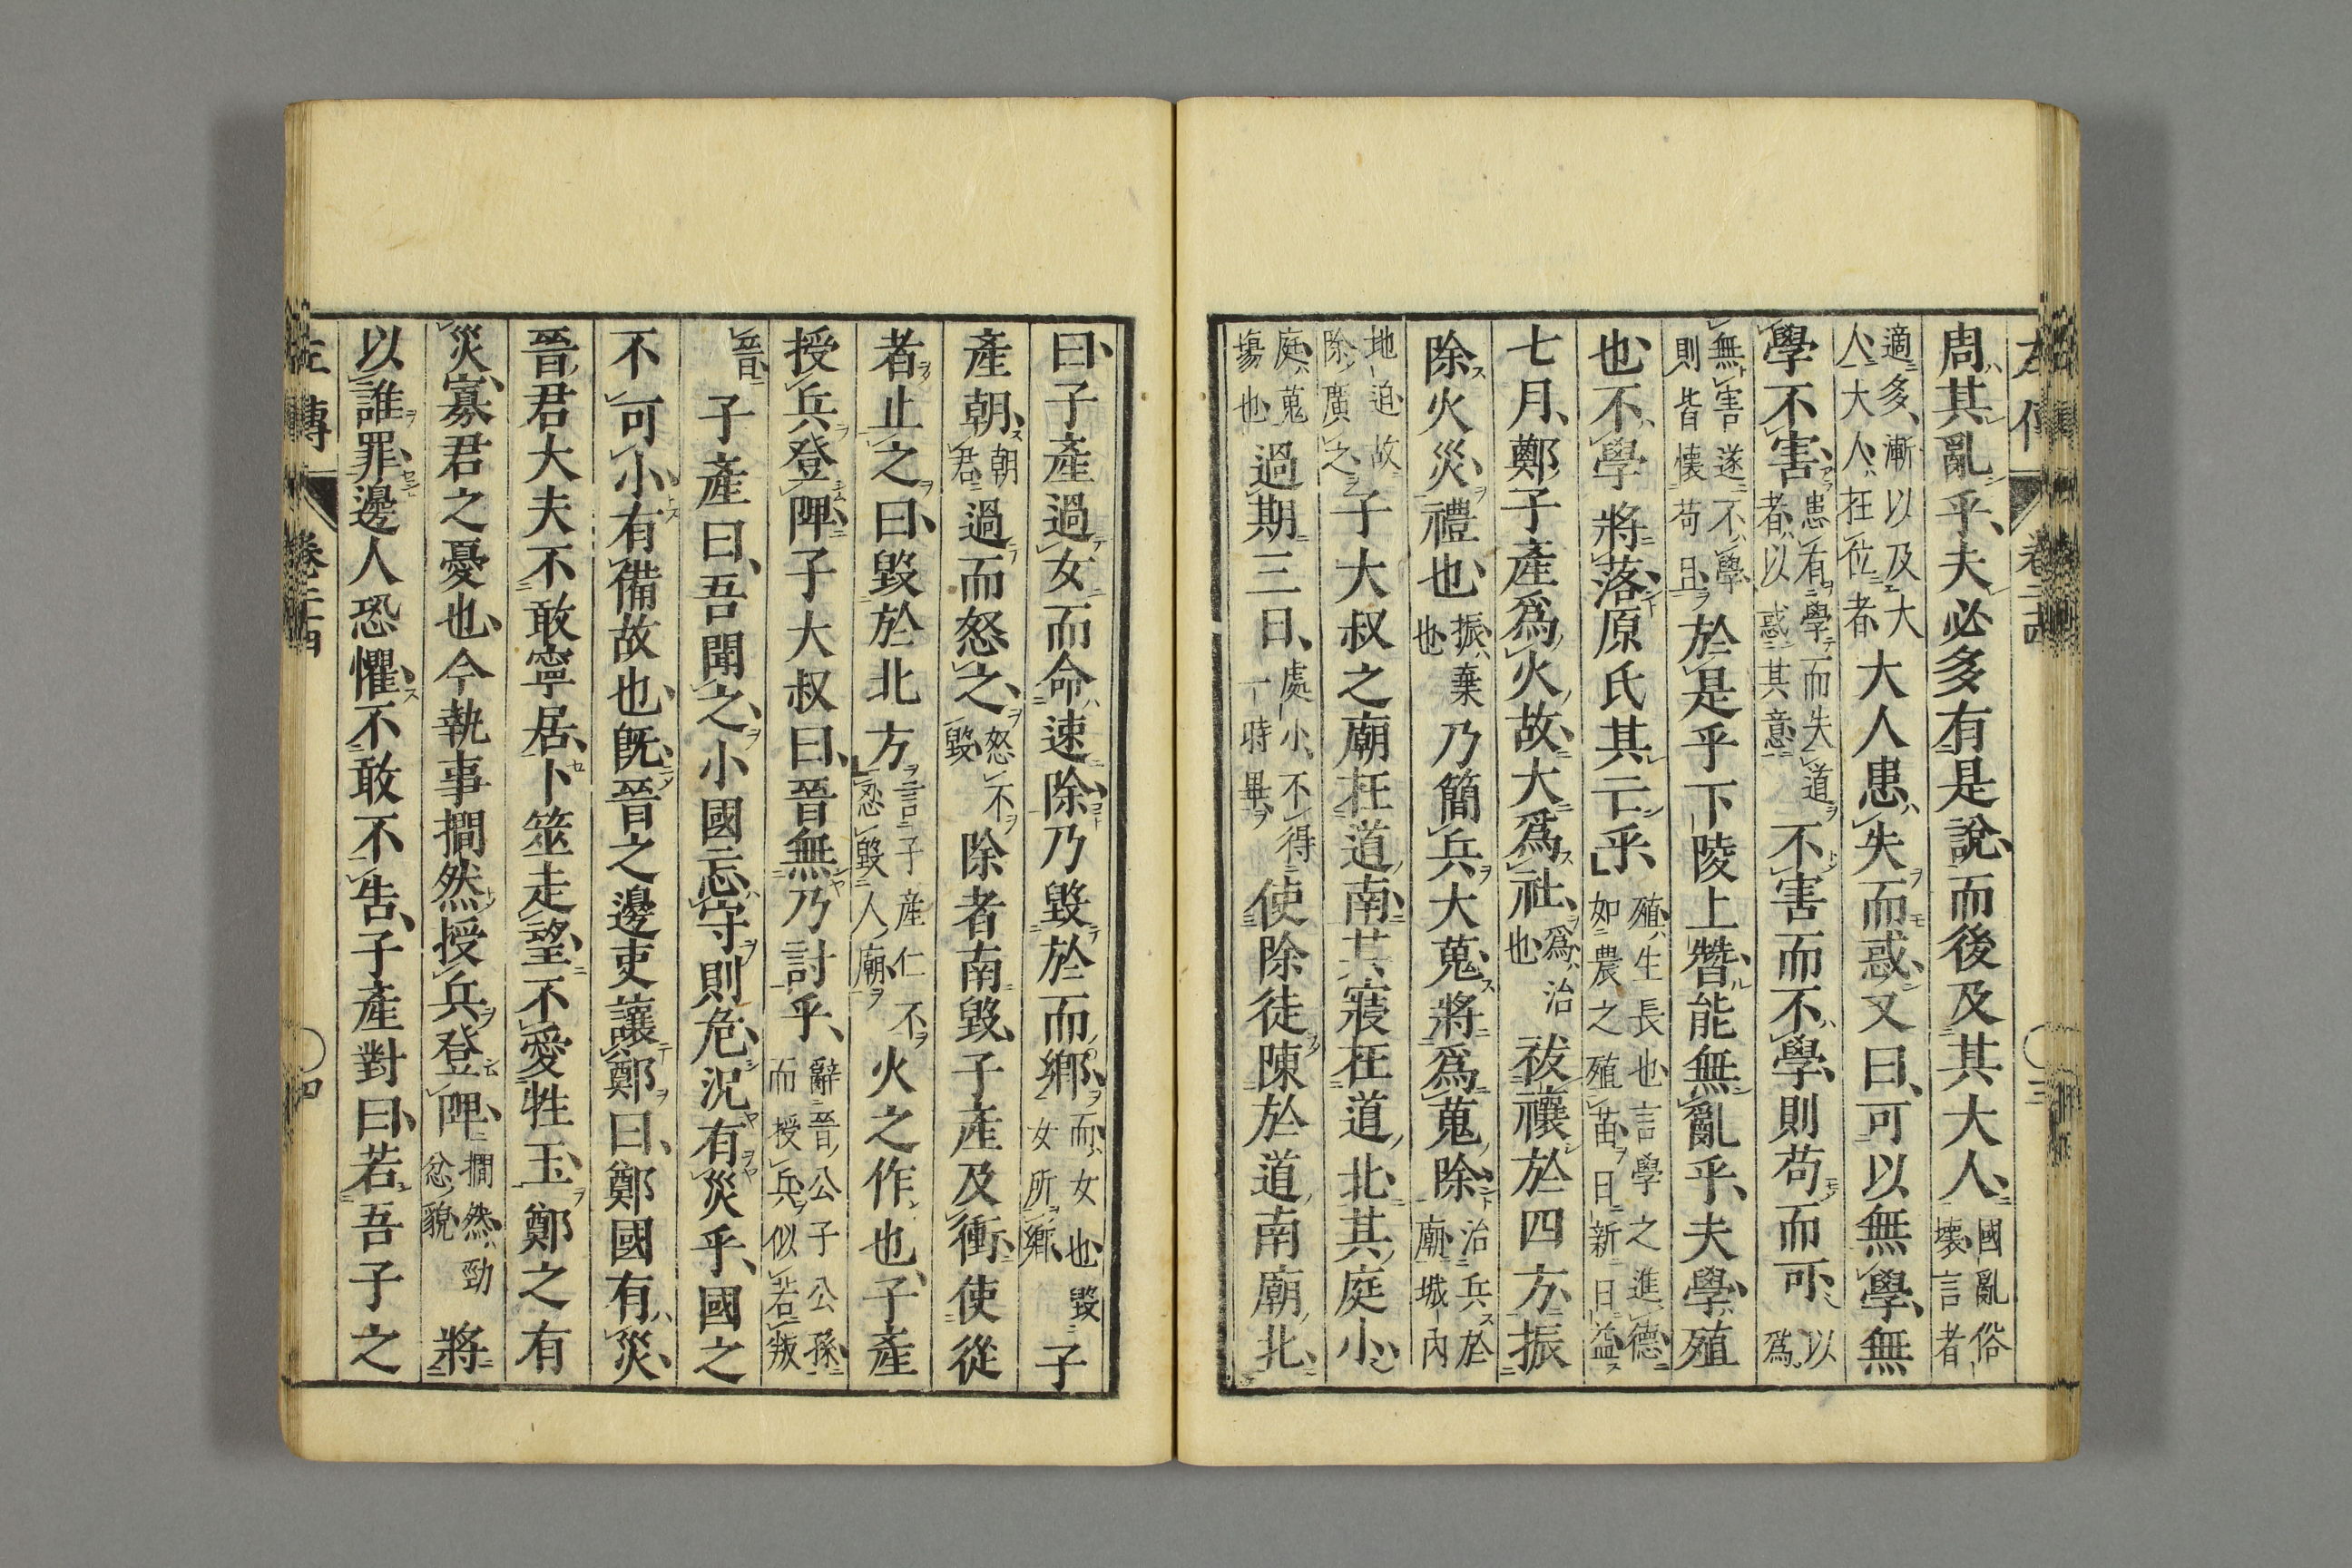 左傳 卷二十四 三
周其亂乎、夫必多有是說、而後及其大人、國亂俗壞、言者
適多、漸以及大人、大人、在位者、大人患失而惑、又曰、可以無學、無
學不害、患有學而失道者、以惑其意、不害而不學、則苟而可、以爲
無害遂不學、則皆懐苟且、於是乎下陵上替、能無亂乎、夫學、殖
也、不學將落、原氏其亡乎、殖、生長也言學之進德、如農之殖苗、日新日益
七月、鄭子產爲火故、大爲社、爲、治也祓禳於四方、振
除火災、禮也、振、棄也乃簡兵大蒐、將爲蒐除、治兵於廟、城內
地迫、故除廣之子大叔之廟在道南、其寢在道北、其庭小、
庭、蒐場也過期三日、處小、不得一時畢使除徒陳於道南廟北、
曰、子產過女而命速除、乃毀於而鄉、而、女也毀女所鄉、子
產朝、朝君過而怒之、怒不毀除者南毀、子產及衝、使從
者止之曰、毀於北方、言子產仁不忍毀人廟火之作也、子產
授兵登陴、子大叔曰、晉無乃討乎、辭晉公子公孫、而授兵似若叛
晉、子產曰、吾聞之、小國忘守則危、況有災乎、國之
不可小、有備故也、旣晉之邊吏讓鄭曰、鄭國有災、
晉君大夫不敢寧居、卜筮走望、不愛牲玉、鄭之有
災、寡君之憂也、今執事撊然授兵登陴、撊然、勁忿貌將
以誰罪、邊人恐懼、不敢不告、子產對曰、若吾子之
左傳 卷二十四 四